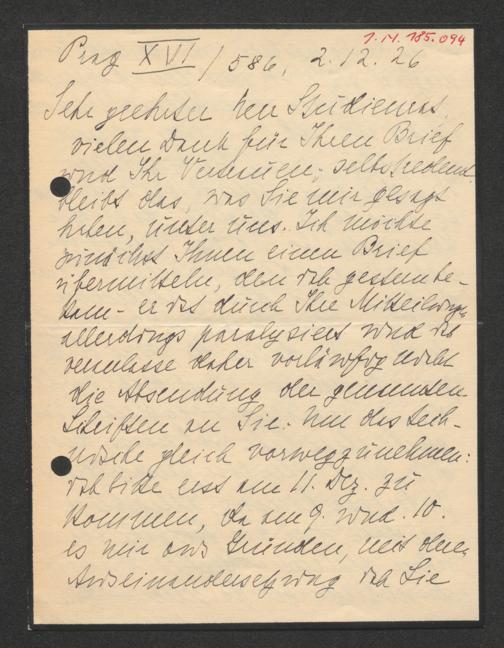 1.14.185.094
Prag XVI / 586, 2.12.26
Sehr geehrter Herr Studienrat,
vielen Dank für Ihren Brief
und Ihr Vertrauen; selbstredend
bleibt das, was Sie mir gesagt
haben, unter uns. Ich möchte
zunächst Ihnen einen Brief
übermitteln, den ich gestern be-
kam - er ist durch Ihre Mitteilungen
allerdings paralysiert und ich
veranlasse daher vorläufig nicht
die Absendung der genannten
Schriften an Sie. Um das tech-
nische gleich vorwegzunehmen:
ich bitte erst am 11. Dez. zu
kommen, da am 9. und 10.
es mir aus Gründen, mit deren
Auseinandersetzung ich Sie